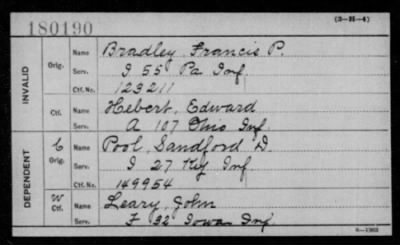 180190
(3-H-4)
INVALID
Orig.
Name Bradley, Francis P.
Serv. I 55 Pa Inf.
Ctf. No. 123211
Ctf.
Name Hebert, Edward
Serv. A 107 Ohio Inf.
DEPENDENT
C Orig.
Name Pool, Sandford D.
Serv. I 27 Ky Inf.
Ctf. No. 149954
W Ctf.
Name Leary, John
Serv. F 32 Iowa Inf